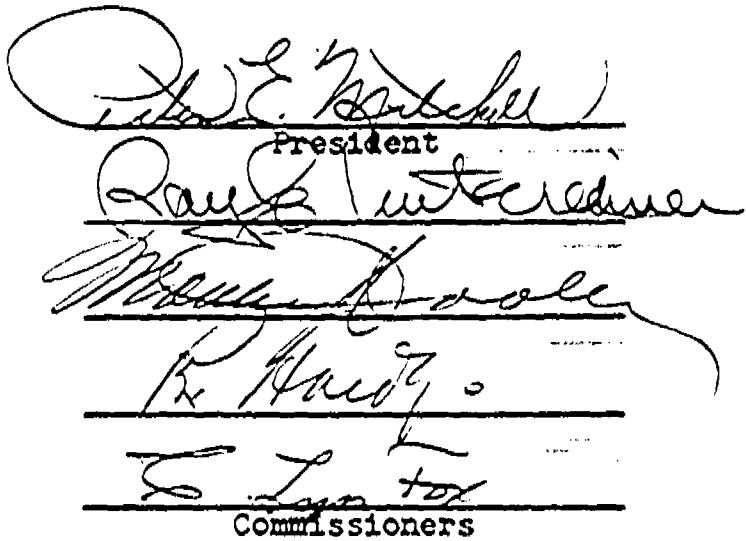 Peter E. Mitchell
President
Ray E. Untereiner
Dooley
R. Hardy
C Lyn Fox
Commissioners